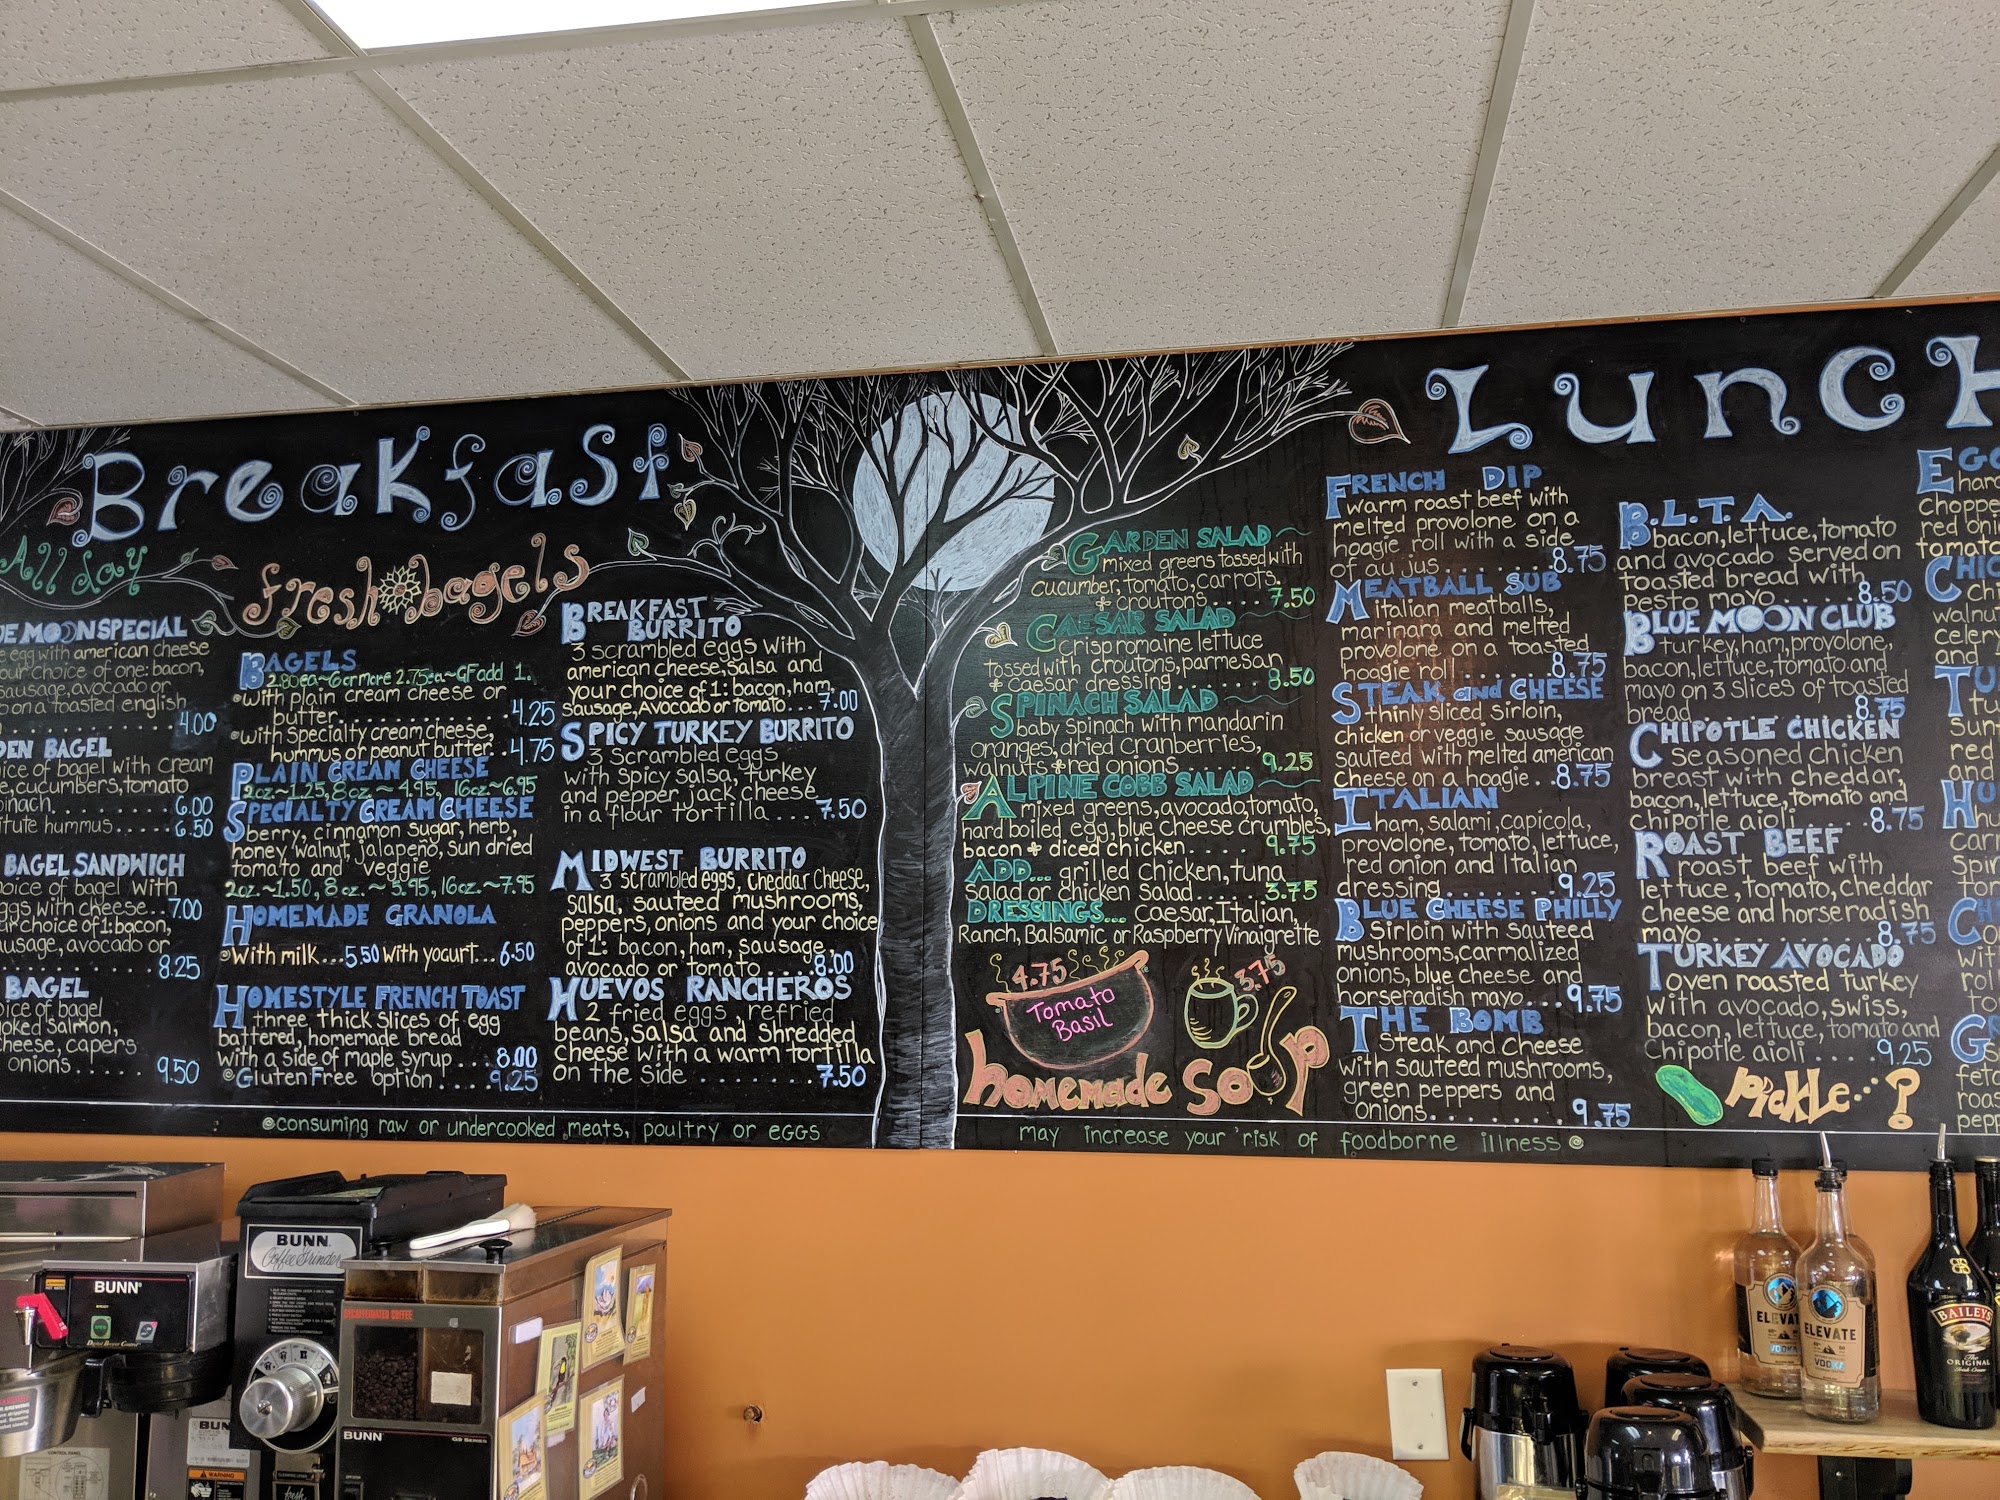 Breakfast
All day
fresh bagels
MOON SPECIAL
egg with american cheese
choice of one: bacon,
sausage, avocado or
on a toasted english
4.00
BAGEL
of bagel with cream
cucumbers, tomato
6.00
hummus..... 6.50
BAGEL SANDWICH
of bagel with
with cheese.. 7.00
choice of 1: bacon,
avocado or
8.25
BAGEL
of bagel
salmon,
capers
onions
9.50
BAGELS
2.80ea~6 or more 2.75ea~GF add 1.
with plain cream cheese or
butter.......... 4.25
with specialty cream cheese,
hummus or peanut butter.. 4.75
PLAIN CREAM CHEESE
2oz.~1.25, 8oz.~4.95, 16oz.~6.95
SPECIALTY CREAM CHEESE
berry, cinnamon sugar, herb,
honey walnut, jalapeño, sun dried
tomato and veggie
2oz.~1.50, 8oz.~5.95, 16oz.~7.95
HOMEMADE GRANOLA
with milk...5.50 with yogurt...6.50
HOMESTYLE FRENCH TOAST
three thick slices of egg
battered, homemade bread
with a side of maple syrup... 8.00
Gluten Free option.... 9.25
BREAKFAST
BURRITO
3 scrambled eggs with
american cheese, salsa and
your choice of 1: bacon, ham,
sausage, avocado or tomato... 7.00
SPICY TURKEY BURRITO
3 Scrambled eggs
with spicy salsa, turkey
and pepper jack cheese
in a flour tortilla... 7.50
MIDWEST BURRITO
3 scrambled eggs, cheddar cheese,
salsa, sauteed mushrooms,
peppers, onions and your choice
of 1: bacon, ham, sausage,
avocado or tomato... 8.00
HUEVOS RANCHEROS
2 fried eggs, refried
beans, salsa and shredded
cheese with a warm tortilla
on the side........ 7.50
consuming raw or undercooked meats, poultry or eggs
Lunch
GARDEN SALAD
mixed greens tossed with
cucumber, tomato, carrots,
& croutons..... 7.50
CAESAR SALAD
crisp romaine lettuce
tossed with croutons, parmesan
& caesar dressing..... 8.50
SPINACH SALAD
baby spinach with mandarin
oranges, dried cranberries,
walnuts & red onions..... 9.25
ALPINE COBB SALAD
mixed greens, avocado, tomato,
hard boiled egg, blue cheese crumbles,
bacon & diced chicken..... 9.75
ADD... grilled chicken, tuna
salad or chicken salad..... 3.75
DRESSINGS... Caesar, Italian,
Ranch, Balsamic or Raspberry Vinaigrette
4.75
3.75
Tomato
Basil
homemade soup
FRENCH DIP
warm roast beef with
melted provolone on a
hoagie roll with a side
of au jus....... 8.75
MEATBALL SUB
italian meatballs,
marinara and melted
provolone on a toasted
hoagie roll...... 8.75
STEAK and CHEESE
thinly sliced Sirloin,
chicken or veggie sausage
sauteed with melted american
cheese on a hoagie.. 8.75
ITALIAN
ham, salami, capicola,
provolone, tomato, lettuce,
red onion and Italian
dressing........ 9.25
BLUE CHEESE PHILLY
Sirloin with sauteed
mushrooms, carmalized
onions, blue cheese and
horseradish mayo... 9.75
THE BOMB
Steak and Cheese
with sauteed mushrooms,
green peppers and
onions........ 9.75
B.L.T.A.
bacon, lettuce, tomato
and avocado served on
toasted bread with
pesto mayo...... 8.50
BLUE MOON CLUB
turkey, ham, provolone,
bacon, lettuce, tomato and
mayo on 3 slices of toasted
bread 8.75
CHIPOTLE CHICKEN
seasoned chicken
breast with cheddar,
bacon, lettuce, tomato and
chipotle aioli..... 8.75
ROAST BEEF
roast beef with
lettuce, tomato, cheddar
cheese and horseradish
mayo 8.75
TURKEY AVOCADO
oven roasted turkey
with avocado, swiss,
bacon, lettuce, tomato and
Chipotle aioli.... 9.25
Pickle...?
may increase your risk of foodborne illness
BUNN
BUNN
Coffee Grinder
DECAFFEINATED COFFEE
BUNN
BUNN
WARNING
ELEVATE
VODKA
ELEVATE
VODKA
BAILEYS
The
ORIGINAL